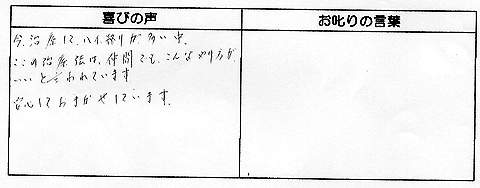 喜びの声
お叱りの言葉
今、治療して、ハイ移りが多い中、
ここの治療法は、仲間でも、こんなやり方が
いいと言われています
安心しておまかせしています。